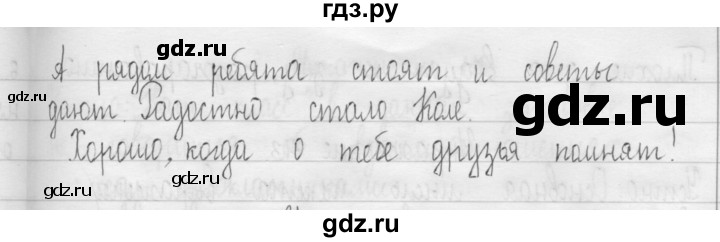 гдз.ру
А рядом ребята стоят и советы
дают. Радостно стало Коле.
Хорошо, когда о тебе друзья помнят!
gdz.ru
gdz.ru
gdz.ru
gdz.ru
gdz.ru
gdz.ru
gdz.ru
gdz.ru